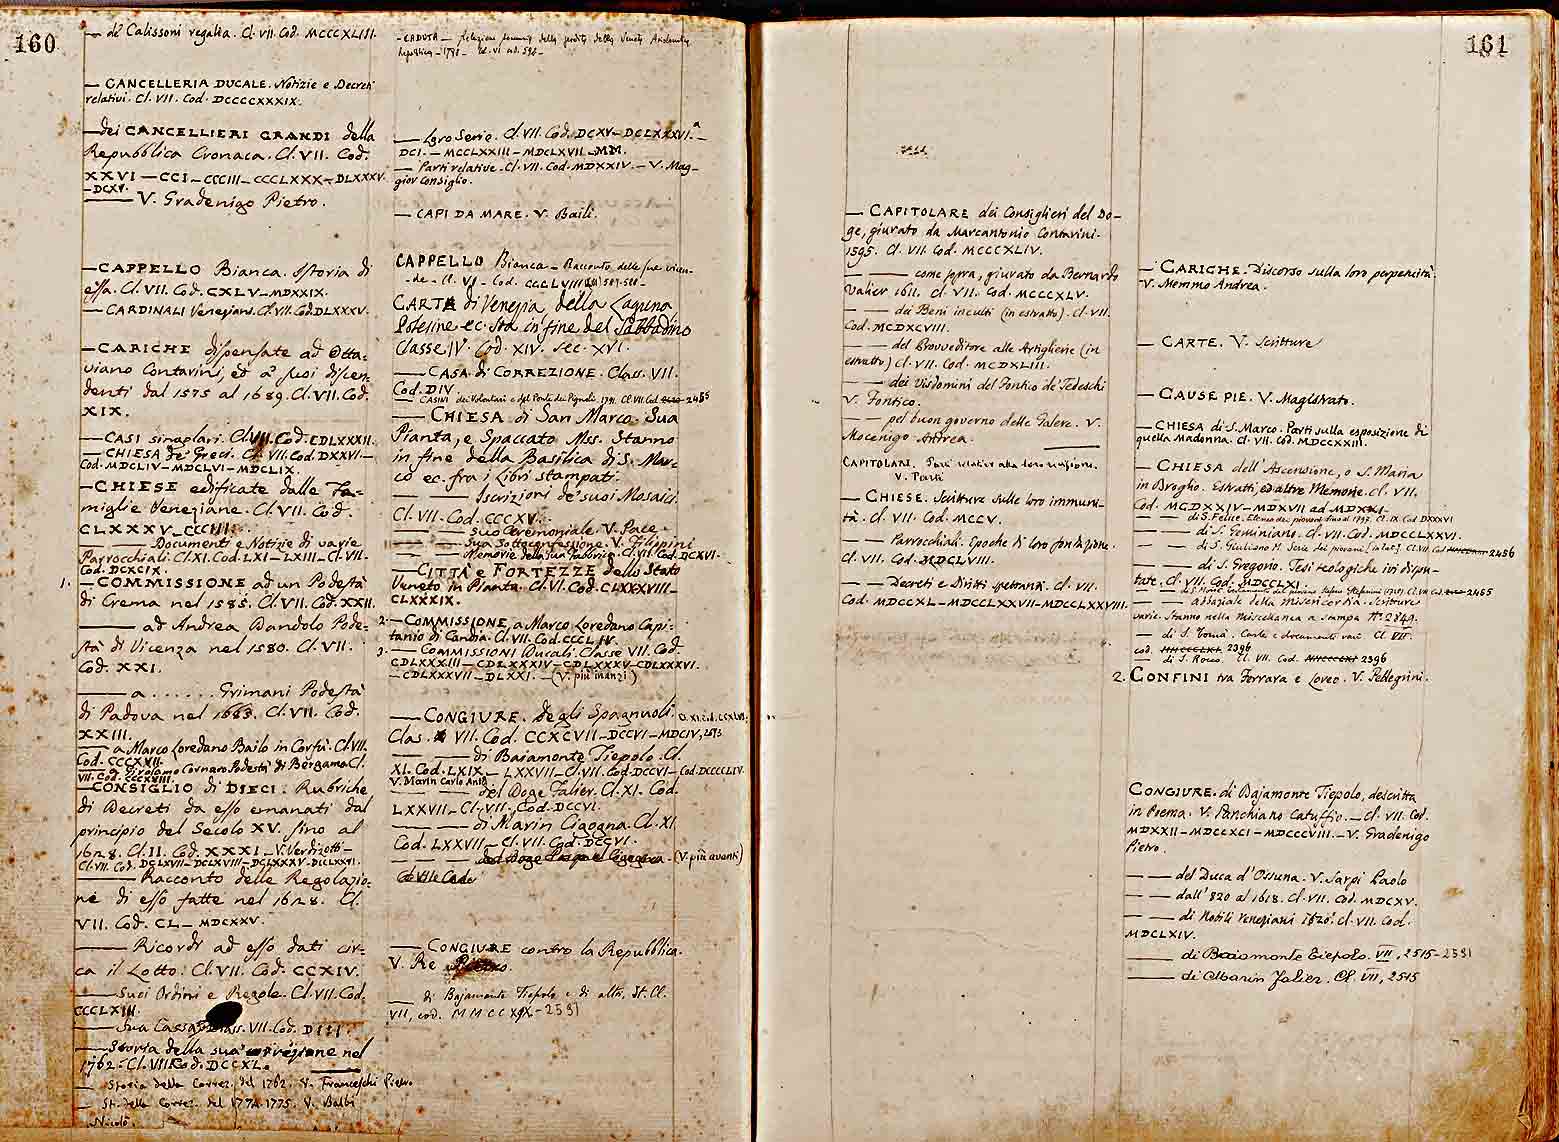 160
— de' Calissoni regalia. Cl. VII. Cod. MCCCXLIII.
— CANCELLERIA DUCALE. Notizie e Decreti
relativi. Cl. VII. Cod. DCCCCXXXIX.
— dei CANCELLIERI GRANDI della
Repubblica Cronaca. Cl. VII. Cod.
XXVI — CCI — CCCIII — CCCLXXX — DLXXXV.
— DCXV.
—— V. Gradenigo Pietro.
— CAPPELLO Bianca. Istoria di
essa. Cl. VII. Cod. CXLV — MDXXIX.
— CARDINALI Veneziani. Cl. VII. Cod. DLXXXV.
— CARICHE dispensate ad Otta-
viano Contarini, ed a' suoi discen-
denti dal 1575 al 1689. Cl. VII. Cod.
XIX.
— CASI singolari. Cl. VII. Cod. CDLXXXII.
— CHIESA de' Greci. Cl. VII. Cod. DXXVI —
Cod. MDCLIV — MDCLVI — MDCLIX.
— CHIESE edificate dalle Fa-
miglie Veneziane. Cl. VII. Cod.
CLXXXV — CCCIII.
—— Documenti e Notizie di varie
Parrocchiali. Cl. XI. Cod. LXI — LXIII — Cl. VII.
Cod. DCXCIX.
1. — COMMISSIONE ad un Podestà
di Crema nel 1585. Cl. VII. Cod. XXII.
—— ad Andrea Dandolo Pode-
stà di Vicenza nel 1580. Cl. VII.
Cod. XXI.
—— a . . . . . . Grimani Podestà
di Padova nel 1683. Cl. VII. Cod.
XXIII.
—— a Marco Loredano Bailo in Corfù. Cl. VII.
Cod. CCCXVII.
—— a Girolamo Cornaro Podestà di Bergamo. Cl.
VII. Cod. CCCXVIII.
— CONSIGLIO di DIECI. Rubriche
di Decreti da esso emanati dal
principio del Secolo XV. sino al
1628. Cl. II. Cod. XXXI — V. Verdizotti —
Cl. VII. Cod. DCLXVII — DCLXVIII — DCLXXXV — DCCLXXXI.
—— Racconto delle Regolazio-
ne di esso fatte nel 1628. Cl.
VII. Cod. CL — MDCXXV.
—— Ricordi ad esso dati cir-
ca il Lotto. Cl. VII. Cod. CCXIV.
—— Suoi Ordini e Regole. Cl. VII. Cod.
CCCLXIII.
—— Sua Cassa. Class. VII. Cod. DIII.
—— Storia della sua nel
1762. Cl. VII. Cod. DCCXL.
— Storia della Correz. del 1762. V. Franceschi Pietro
— St. della Correz. del 1774-1775. V. Balbi
Nicolò.
— CADUTA — Relazione della perdita della Veneta Aristocratica
Repubblica — 1798 — Cl. VI cod. 596 —
— loro Serie. Cl. VII. Cod. DCXV — DCLXXXVI.ª —
DCI. — MCCLXXIII — MDCLXVII — MM.
— Parti relative. Cl. VII. Cod. MDXXIV. — V. Mag-
gior Consiglio.
— CAPI DA MARE. V. Baili.
CAPPELLO Bianca — Racconto delle sue vicen-
de — Cl. VI — Cod. CCCLVIII 589-588 —
CARTA di Venezia, della Laguna
Polesine ec. Sta in fine del Sabbadino
Classe IV. Cod. XIV. sec. XVI.
— CASA di CORREZIONE. Class. VII.
Cod. DIV.
— CASINI dei Volontari e del Ponte dei Pignoli. 1791. Cl. VII. Cod. 2485
— CHIESA di San Marco. Sua
Pianta, e Spaccato Mss. Stanno
in fine della Basilica di S. Mar-
co ec. fra i Libri stampati.
—— Iscrizioni de' suoi Mosaici.
Cl. VII. Cod. CCCXV.
—— Suo Ceremoniale. V. Pace.
—— Sua Sottoconfessione. V. Filippini
—— Memorie della sua Fabbrica. Cl. VII. Cod. DCXVI.
— CITTÀ e FORTEZZE dello Stato
Veneto in Pianta. Cl. VI. Cod. CLXXXVIII —
CLXXXIX.
2. — COMMISSIONE, a Marco Loredano Capi-
tanio di Candia. Cl. VII. Cod. CCCLIV.
3. — COMMISSIONI Ducali. Classe VII. Cod.
CDLXXXIII — CDLXXXIV — CDLXXXV — CDLXXXVI.
— CDLXXXVII — DLXXI. — (V. più inanzi)
— CONGIURE. degli Spagnuoli.
Clas. VII. Cod. CCXCVII — DCCVI — MDCIV, 2593.
—— di Baiamonte Tiepolo. Cl.
XI. Cod. LXIX — LXXVII — Cl. VII. Cod. DCCVI — Cod. DCCCCLIV.
V. Marin Carlo Ant.
—— del Doge Falier. Cl. XI. Cod.
LXXVII — Cl. VII. Cod. DCCVI.
—— di Marin Cigogna. Cl. XI.
Cod. LXXVII — Cl. VII. Cod. DCCVI.
—— del Doge Pasqual Cigogna — (V. più avanti)
Cl. VII. Cod.
— CONGIURE contro la Repubblica.
V. Re Pietro.
— di Bajamonte Tiepolo e di altri. St. Cl.
VII, cod. MMCCXIX — 2531
161
— CAPITOLARE dei Consiglieri del Do-
ge, giurato da Marcantonio Contarini.
1595. Cl. VII. Cod. MCCCXLIV.
—— come sopra, giurato da Bernardo
Valier 1611. Cl. VII. Cod. MCCCXLV.
—— dei Beni inculti (in estratto). Cl. VII.
Cod. MCDXCVIII.
—— del Provveditore alle Artiglierie (in
estratto) Cl. VII. Cod. MCDXLIII.
—— dei Visdomini del Fontico de' Tedeschi
V. Fontico.
—— pel buon governo delle Galere. V.
Mocenigo Andrea.
CAPITOLARI. Parti relative alla loro revisione.
V. Parti
— CHIESE. Scritture sulle loro immuni-
tà. Cl. VII. Cod. MCCV.
—— Parrocchiali. Epoche di loro fondazione.
Cl. VII. Cod. MDCLVIII.
—— Decreti e Diritti spettanti. Cl. VII.
Cod. MDCCXL — MDCCLXXVII — MDCCLXXVIII.
— CARICHE. Discorso sulla loro perpetuità.
V. Memmo Andrea.
— CARTE. V. Scritture
— CAUSE PIE. V. Magistrato.
— CHIESA di S. Marco. Parti sulla esposizione di
quella Madonna. Cl. VII. Cod. MDCCXXIII.
— CHIESA dell'Ascensione, o S. Maria
in Broglio. Estratti, ed altre Memorie. Cl. VII.
Cod. MCDXXIV — MDXVII ad MDXXI.
—— di S. Felice. Elenco dei piovani fino al 1797. Cl. IX Cod DXXXVI
—— di S. Geminiano. Cl. VII. Cod. MDCCLXXVI.
—— di S. Giuliano M. Serie dei piovani [in lat.]. Cl. VII. Cod. 2456
—— di S. Gregorio. Tesi teologiche ivi dispu-
tate. Cl. VII. Cod. MDCCLXI.
—— Testamento del piovano Cl. VII Cod. 2485
—— abbaziale della Misericordia. Scritture
varie. Stanno nella Miscellanea a stampa N.º 2849.
— di S. Tomà. Carte e documenti vari. Cl. VII.
cod. 2396
— di S. Rocco. Cl. VII. Cod. 2396
2. CONFINI tra Ferrara e Loreo. V. Pellegrini.
CONGIURE. di Bajamonte Tiepolo, descritta
in Poema. V. Panchiano Catuffio. — Cl. VII. Cod.
MDXXII — MDCLXCI — MDCCCVIII. — V. Gradenigo
Pietro.
—— del Duca d'Ossuna. V. Sarpi Paolo
—— dall'820 al 1618. Cl. VII. Cod. MDCXV.
—— di Nobili Veneziani 1620. Cl. VII. Cod.
MDCLXIV.
—— di Baiamonte Tiepolo. VII, 2515-2531
—— di Marin Falier. Cl. VII, 2515